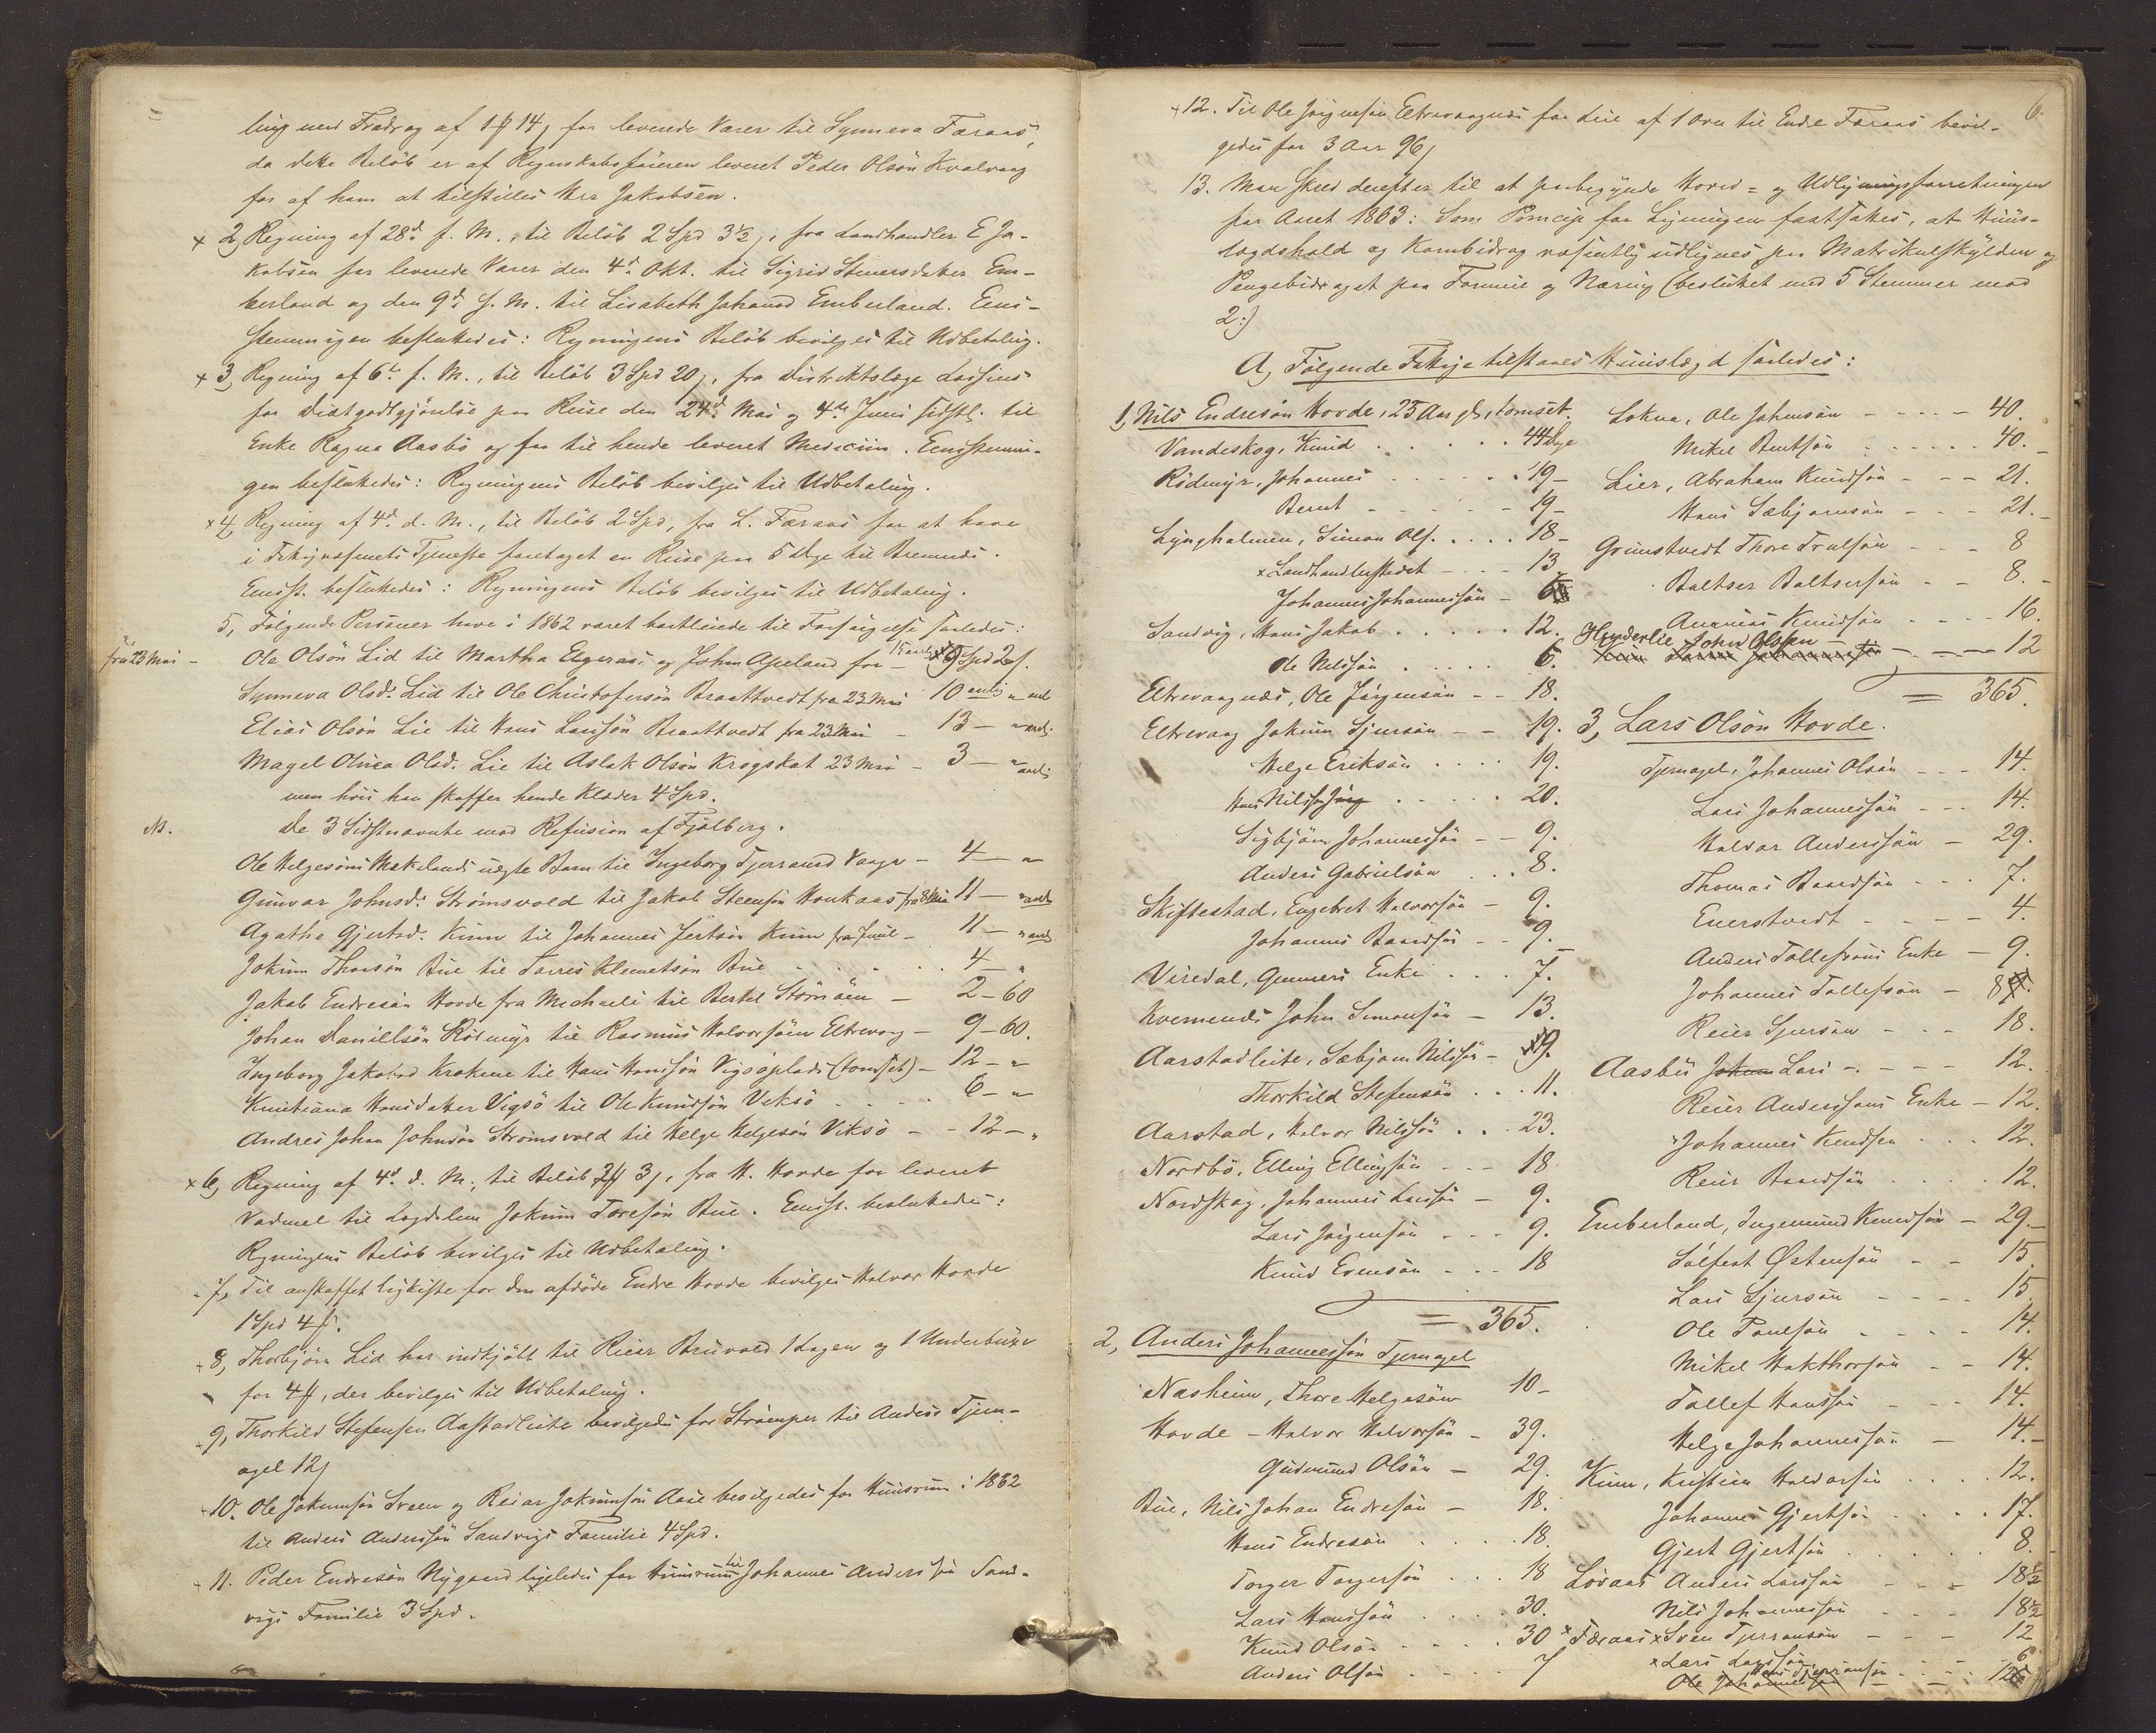 ling med Fradrag af 1 # 14 ſ for leverede Varer til Synneva Færaas,
da dette Beløb er af Regnskabsføreren leveret Peder Olsøn Kvalvaag
for af ham at tilstilles Hr Jakobsen.
x 2, Regning af 28de f. M., til Beløb 2 Spd 3½ ſ, fra Landhandler E Ja-
kobsen for leverede Varer den 4de Okt. til Sigrid Steuersdatter Em-
berland og den 9de f. M. til Lisabeth Johansd Emberland. Een-
stemmigen besluttedes: Regningens Beløb bevilges til Udbetaling.
x 3, Regning af 6te f. M., til Beløb 3 Spd 20 ſ, fra Distriktslæge Lassius
for Diætgodtgjørelse paa Reise den 24de Mai og 4de Juni sidstl. til
Enke Ragna Aasbø og for til hende leveret Medicin. Eenstemmi-
gen besluttedes: Regningens Beløb bevilges til Udbetaling.
x 4, Regning af 4de d. M., til Beløb 2 Spd, fra L. Færaas for at have
i Fattigvæsenets Tjeneste foretaget en Reise paa 5 Dge til Bremnes.
Eenst. besluttedes: Regningens Beløb bevilges til Udbetaling.
5, Følgende Personer have i 1862 været bortleiede til Forsørgelse saaledes:
fra 23 Mai - Ole Olsøn Lid til Martha Elgeraas og John Apeland for 9 Spd 2 ſ.
Synneva Olsd. Lid til Ole Christofersøn Braattvedt fra 23 Mai 10 " "
Elias Olsøn Lie til Hans Larssøn Braattvedt fra 23 Mai - 13 - "
Magel Olina Olsd. Lie til Aslak Olsøn Krogskat 23 Mai - 3 - "
men hvis han skaffer hende Klæder 4 Spd.
N. De 3 Sidstnævnte mod Refusion af Fjelberg.
Ole Helgesøns Mækelands uægte Barn til Ingeborg Tjerrансd Vaage - 4 - "
Gunvar Johnsd. Strømsvold til Jakob Steensøn Haukaas fra 8 Mai 11 - "
Agathe Gjertsd. Kinn til Johannes Jertsøn Kinn fra Juul - 11 - "
Jokum Thorsøn Bue til Torres Klemetsøn Bue . . . 4 - "
Jakob Endresøn Hovde fra Michaeli til Bertel Strømøen - 2 - 60
Johan Daniellsøn Rødmyr til Rasmus Halvorsøn Eltrevaag - 9 - 60.
Ingeborg Jakobsd Krakene til Hans Hanssøn Vigsøplads (tomset) - 12 - "
Kristiana Hansdatter Vigsø til Ole Knudsøn Veksø . . . 6 - "
Andreas Johan Johnsøn Strømsvold til Helge Helgesøn Viksø - - 12 - "
x 6, Regning af 4de d. M., til Beløb 3 ſ, fra H. Hovde for leveret
Vadmel til Lægdslem Jokum Toresøn Bue. Eenst. besluttedes:
Regningens Beløb bevilges til Udbetaling.
7, Til anskaffet Ligkiste for den afdøde Endre Hovde bevilges Halvor Hovde
1 Spd 4 #.
8, Thorbjørn Lid har indkjøbt til Reier Bruvold 1 Lagen og 1 Underbuxe
for 4 #, der bevilges til Udbetaling.
9, Thorkild Stefensen Aastadleite bevilgedes for Strømper til Anders Tjern-
agel 12 ſ
10. Ole Jokumsøn Sveen og Reiar Jokumsøn Aase bevilgedes for Huusrum i 1862
til Anders Anderssøn Sandvigs Familie 4 Spd.
11. Peder Endresøn Nygaard ligeledes for Huusrum til Johannes Anderssøn Sand-
vigs Familie 3 Spd.
6.
12. Til Ole Jørgensøn Eltrevaagnæs for Leie af 1 Ovn til Endre Færaas bevil-
gedes for 3 Aar 96 ſ
13. Man skred derefter til at paabegynde Hoved- og Udligningsforretningen
for Aaret 1863: Som Princip for Ligningen fastsattes, at Huus-
lægdshold og Kornbidrag væsentlig udlignes paa Matrikulskylden og
Pengebidraget paa Formue og Næring (besluttet med 5 Stemmer mod
2:)
A, Følgende Fattige tilstaaes Huuslægd saaledes:
1, Nils Endresøn Hovde, 25 Aar gl, tomset.
Vandeskog, Knud . . . 44 Dge
Rødmyr, Johannes . . . 19 -
Bernt - - - 19 -
Lyngholmen, Simon Ols. . . . 18 -
x Landhandlerstedet - - - 13
Johannes Johannessøn - 6
Sandvig, Hans Jakob . . . 12.
Ole Nilssøn . . . 6.
Eltrevaagnæs, Ole Jørgensøn - - 18.
Eltrevaag Jokum Sjursøn - - 19.
Helge Eriksøn . . . 19.
Hans Nilssøn . . . 20.
Sigbjørn Johannessøn - - 9.
Anders Gabrielsøn . . . 8.
Skiftestad, Engebret Halvorsøn - 9.
Johannes Baardsøn - - 9.
Viredal, Gunners Enke . . . 7.
Kvernenes John Simonsøn - 13.
Aarstadleite, Sæbjørn Nilssøn - 9.
Thorkild Stefensøn . . . 11.
Aarstad, Halvor Nilssøn . . . 23.
Nordbø, Elling Ellingsøn - - - 18
Nordskog, Johannes Larssøn - 9.
Lars Jørgensøn . . . 9.
Knud Evensøn - - - 18
= 365.
2, Anders Johannessøn Tjernagel
Næsheim, Thore Helgesøn 10 -
Hovde - Halvor Halvorsøn - 39.
Gudmund Olsøn - 29.
Bue, Nils Johan Endresøn - 18.
Hans Endresøn . . . 18.
Torger Torgersøn . . . 18
Lars Hanssøn . . . 30.
Knud Olsøn . . . 30
Anders Olsøn . . . 7
Lokna, Ole Johansøn - - - 40.
Mikel Bentsøn . . . 40.
Lier, Abraham Knudsøn - - - 21.
Hans Sæbjørnsøn - - - 21.
Grimstvedt Thore Trulsøn - - - 8
Baltser Baltsersøn - - 8.
Ananias Knudsøn - - - 16.
Hynderlie John Olssøn - - - 12
= 365.
3, Lars Olsøn Hovde.
Tjernagel, Johannes Olsøn - - - 14.
Lars Johannessøn - - - 14.
Halvor Anderssøn - 29.
Thomas Baardsøn - - - 7.
Enerstvedt - - - 4.
Anders Tollefsøns Enke - 9.
Johannes Tollefsøn - 8
Reier Sjursøn - - - 18.
Aasbø Lars - - - 12.
Reier Anderssøns Enke - 12.
Johannes Knudsen . . . 12.
Reier Baardsøn . . . 12.
Emberland, Ingemund Knudsøn - 29.
Sølfest Østensøn - - 15.
Lars Sjursøn - - - 15.
Ole Poulsøn - - - 14.
Mikel Hakthorsøn - - 14.
Tollef Hanssøn - - - 14.
Helge Johannessøn - 14.
Kinn, Kristen Haldorsøn . . . 12.
Johannes Gjertsøn . . . 17.
Gjert Gjertsøn . . . 8.
Løvaas Anders Larssøn - - - 18½
Nils Johannessøn - - - 18½
x Færaas x Sven Tjerransøn - - - 12
x Lars Larssøn - - - 6
Ole Johannessøn